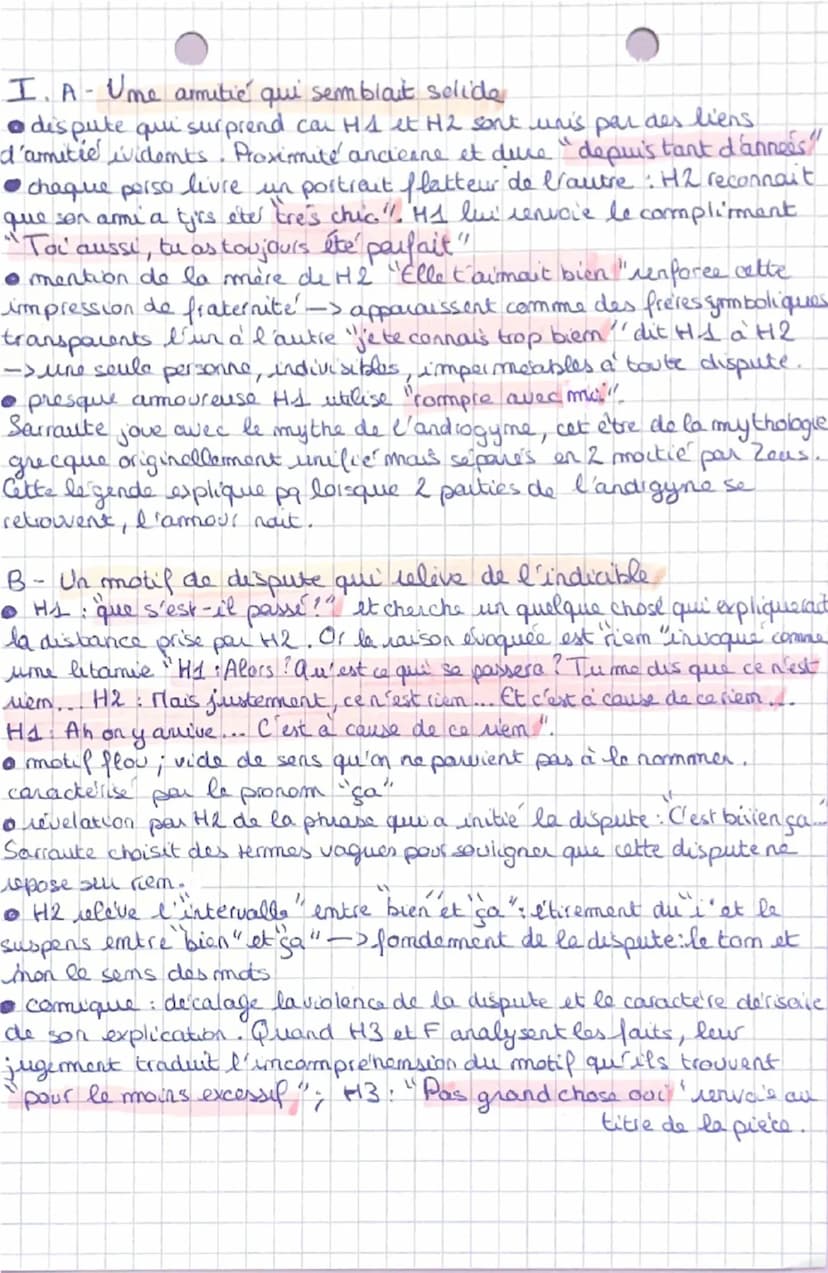 I. A - Une amitié qui semblait solide
• dispute qui surprend car H1 et H2 sont unis par des liens
d'amitié évidents. Proximité ancienne et dure "depuis tant d'années"
• chaque perso livre un portrait flatteur de l'autre : H2 reconnait
que son ami a tjrs été "très chic". H1 lui renvoie le compliment
"Toi aussi, tu as toujours été parfait"
• mention de la mère de H2 "Elle t'aimait bien" renforce cette
impression de fraternité -> apparaissent comme des frères symboliques
transparents l'un à l'autre "je te connais trop bien" dit H1 à H2
-> une seule personne, indivisibles, imperméables à toute dispute.
• presque amoureuse H1 utilise "rompre avec moi".
Sarraute joue avec le mythe de l'androgyme, cet être de la mythologie
grecque originellement unifié mais séparés en 2 moitié par Zeus.
Cette légende explique pq lorsque 2 parties de l'andigyne se
retrouvent, l'amour nait.
B - Un motif de dispute qui relève de l'indicible
• H1 : "que s'est-il passé ?" et cherche un quelque chose qui expliquerait
la distance prise par H2. Or la raison évoquée est "rien" invoqué comme
une litanie "H1 : Alors ? Qu'est ce qui se passera ? Tu me dis que ce n'est
rien... H2 : Mais justement, ce n'est rien... Et c'est à cause de ce rien...
H1 : Ah on y arrive... C'est à cause de ce rien".
• motif flou ; vide de sens qu'on ne parvient pas à le nommer.
caractérisé par le pronom "ça"
• révélation par H2 de la phrase qui a initié la dispute : "C'est biiien ça..."
Sarraute choisit des termes vagues pour souligner que cette dispute ne
repose sur rien.
• H2 relève l'"intervalle" entre "bien" et "ça" : étirement du "i" et le
suspens entre "bien" et "ça" -> fondement de la dispute : le ton et
non le sens des mots
• comique : décalage la violence de la dispute et le caractère dérisoire
de son explication. Quand H3 et F analysent les faits, leur
jugement traduit l'incompréhension du motif qu'ils trouvent
"pour le moins excessif" ; H3 : "Pas grand chose oui" renvoie au
titre de la pièce.